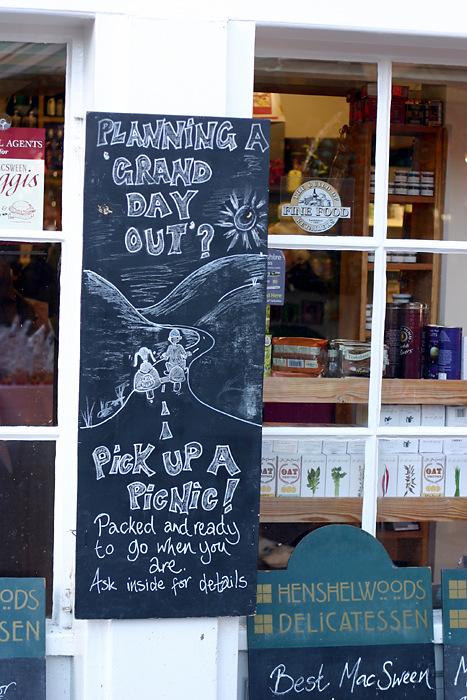 PLANNING A
'GRAND
DAY
OUT'?
PICK UP A
PICNIC!
Packed and ready
to go when you
are.
Ask inside for details
AGENTS
for
MACSWEEN
FINE FOOD
OAT
OAT
OAT
HENSHELWOODS
DELICATESSEN
Best MacSween